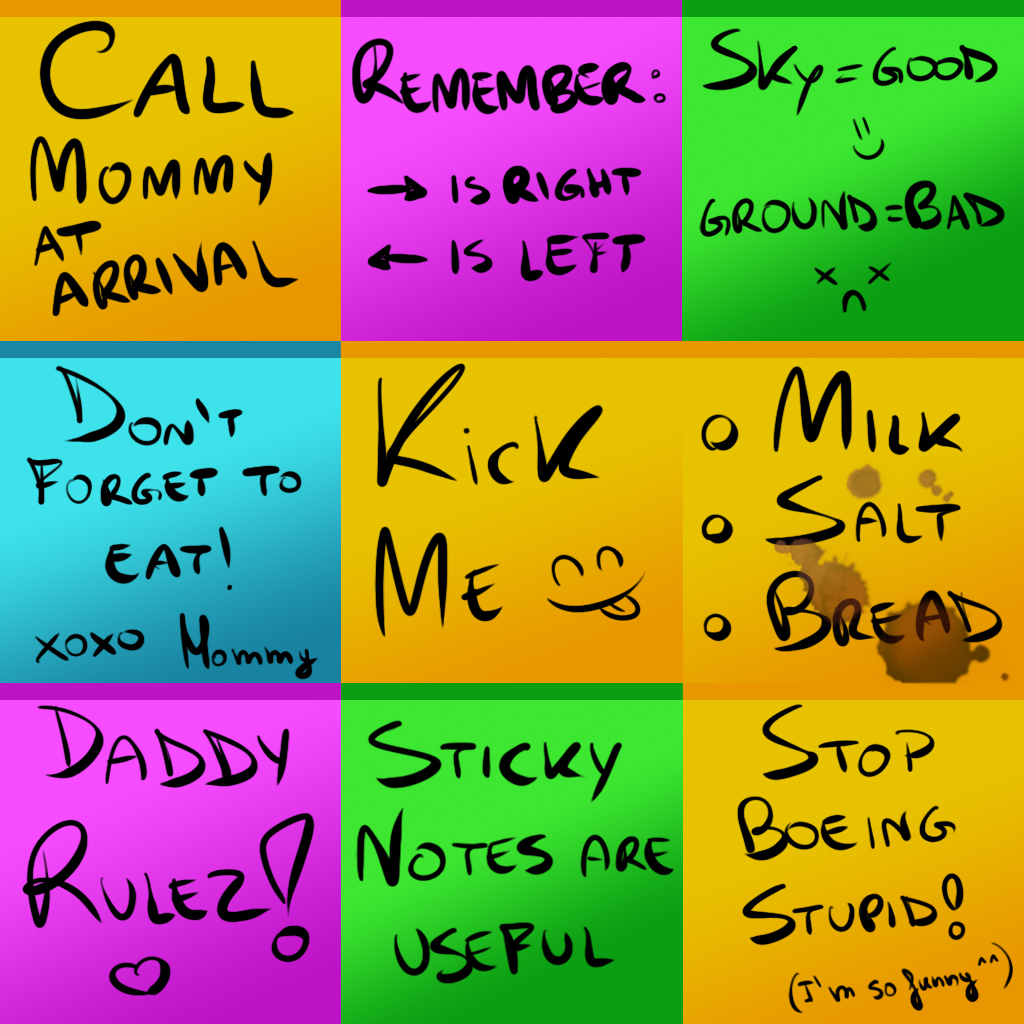 CALL
MOMMY
AT
ARRIVAL
REMEMBER:
→ IS RIGHT
← IS LEFT
SKY = GOOD
GROUND = BAD
DON'T
FORGET TO
EAT!
XOXO Mommy
KicK
ME
MILK
SALT
BREAD
DADDY
RULEZ!
STICKY
NOTES ARE
USEFUL
STOP
BOEING
STUPID!
(I'm so funny ^^)